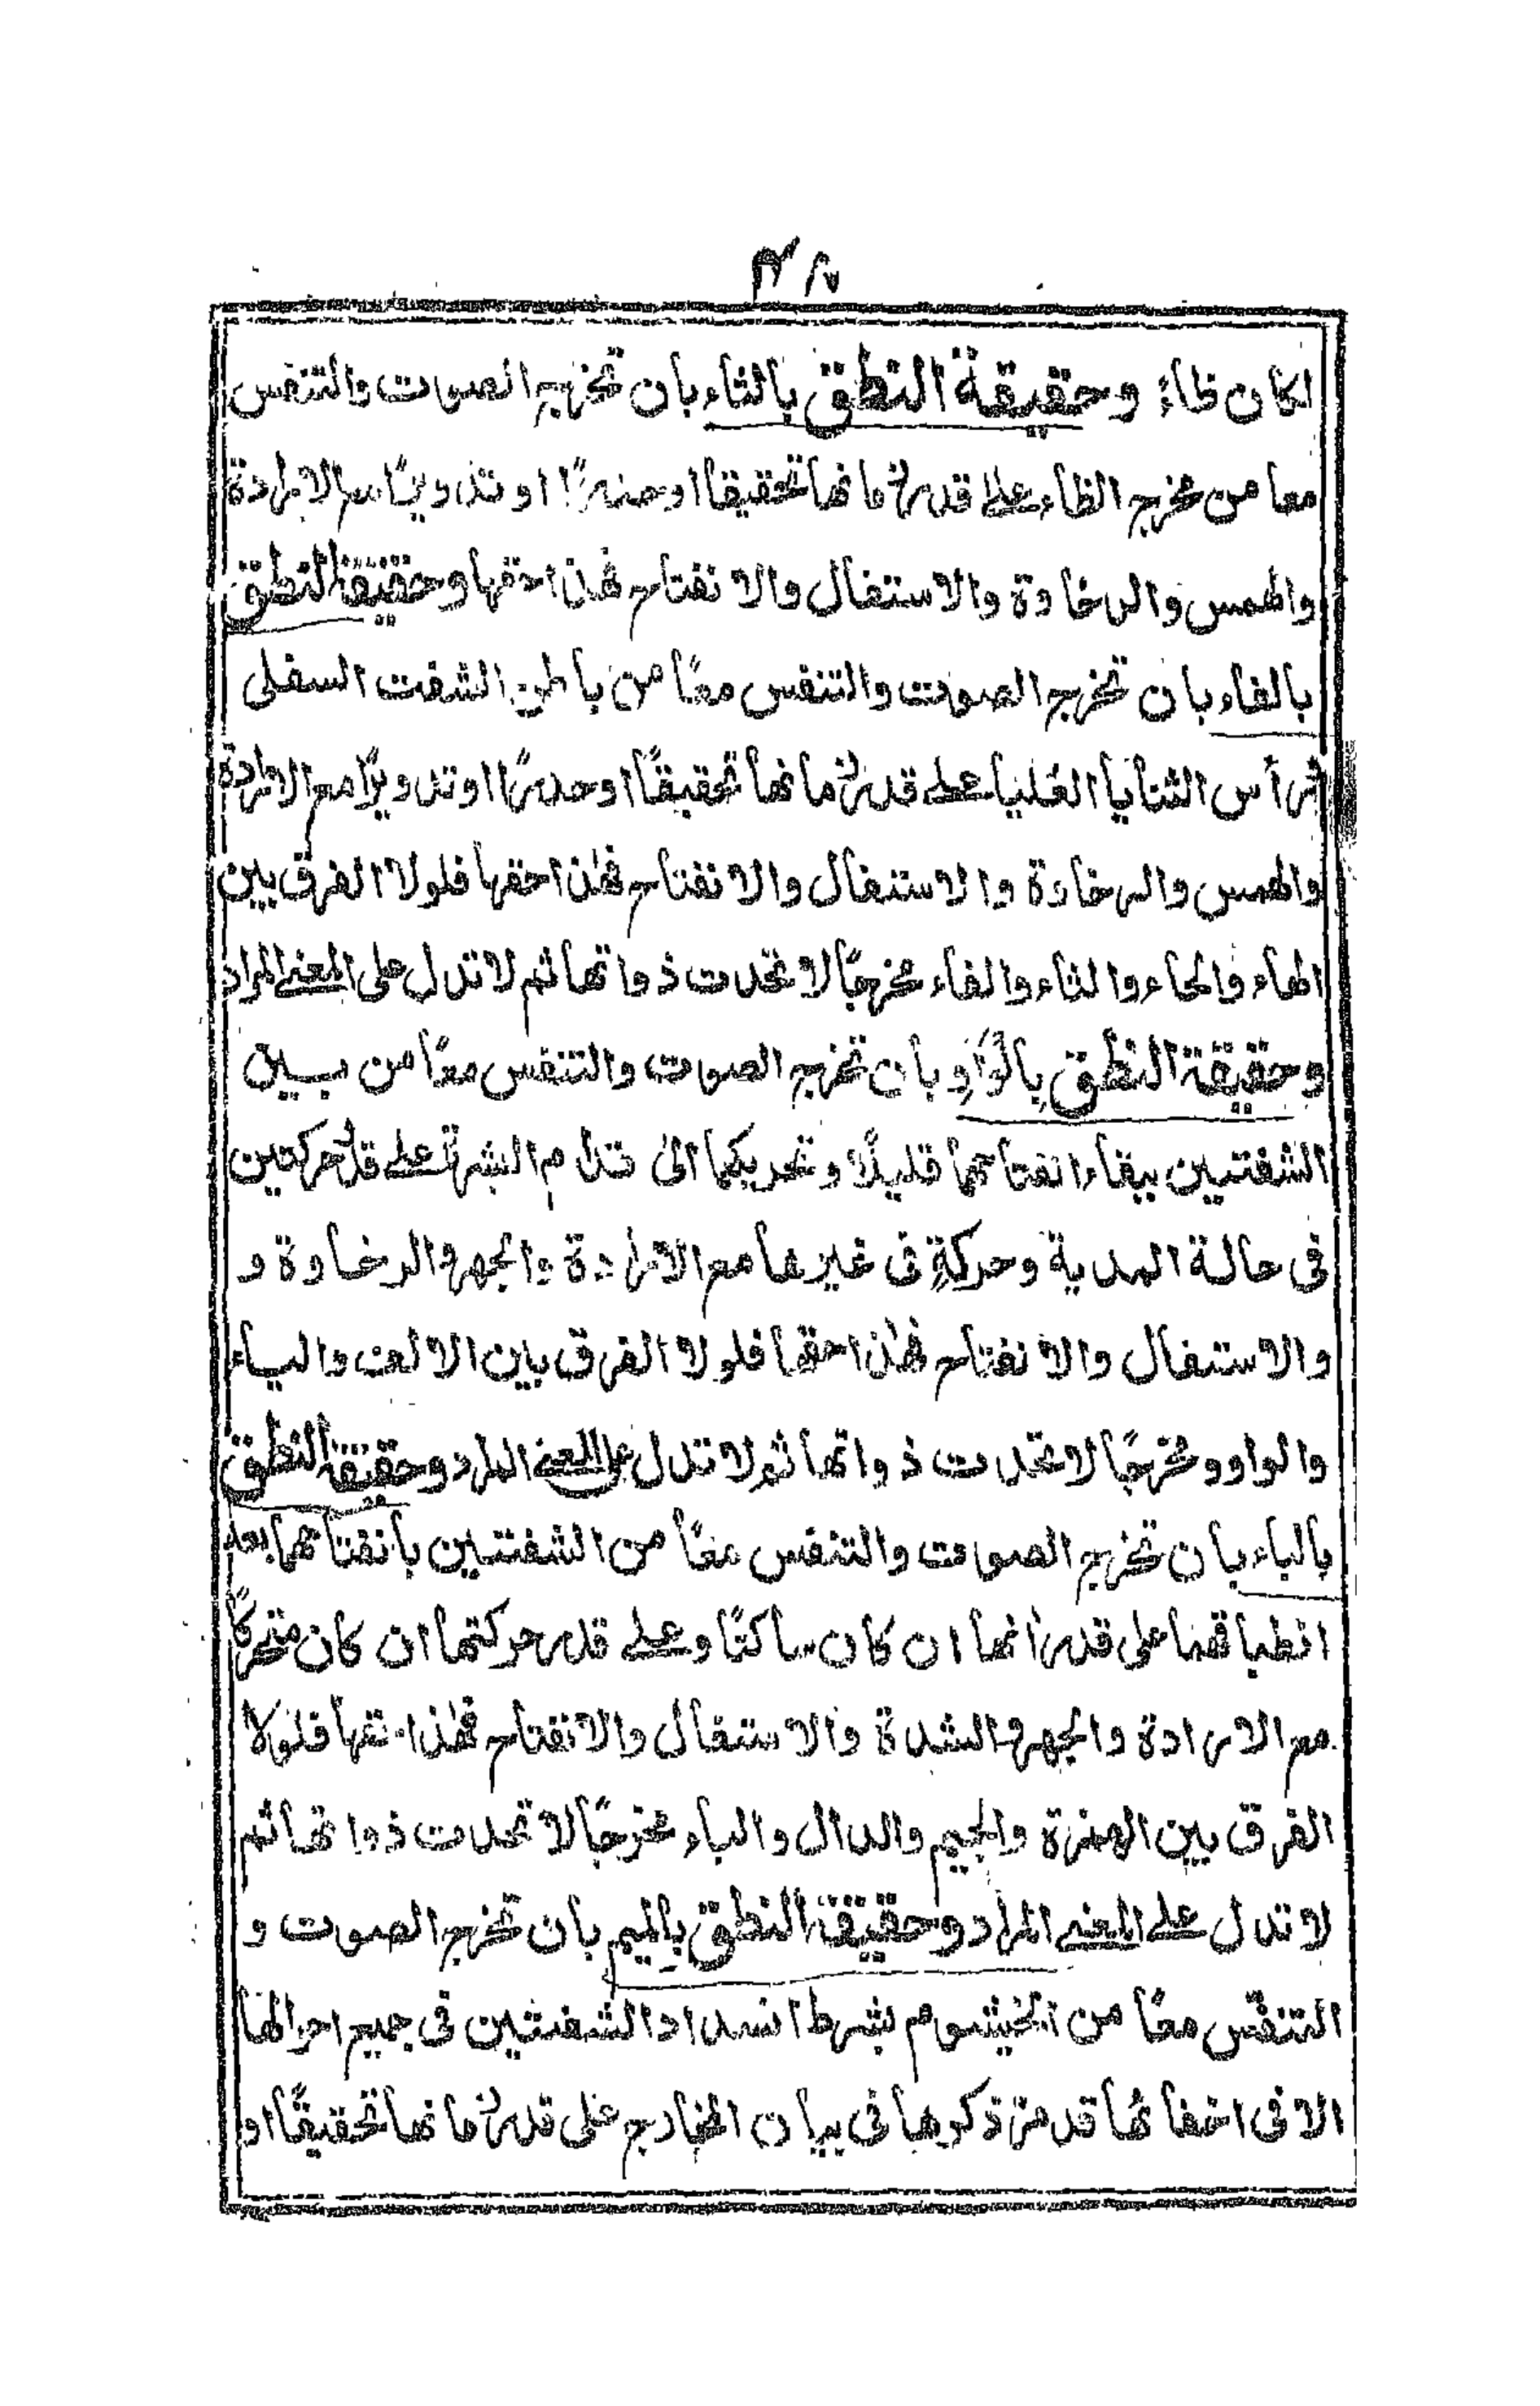 لكان ظاءً وحقيقة النطق بالثاء بان تخرج الصوت والتنفس
معا من مخرج الظاء على قدر زمانها تحقيقا او حدرًا او تدويرًا مع الارادة
والهمس والرخاوة والاستفال والانفتاح فهذا حقها وحقيقة النطق
بالفاء بان تخرج الصوت والتنفس معًا من باطن الشفت السفلى
ثم رأس الثنايا العُليا على قدر زمانها تحقيقًا او حدرًا او تدويرًا مع الارادة
والهمس والرخاوة والاستفال والانفتاح فهذا حقها فلولا الفرق بين
الهاء والحاء والثاء والفاء مخرجًا لاتحدت ذواتها ثم لا تدل على المعنى المراد
وحقيقة النطق بِالْوَاوِ بان تخرج الصوت والتنفس معًا من بين
الشفتين ببقاء انفتاحهما قليلًا وتحريكهما الى قدام البشرة على قدر حركتين
فى حالة المدية وحركةٍ فى غيرها مع الارادة والجهر والرخاوة و
والاستفال والانفتاح فهذا حقها فلولا الفرق بين الالف والياء
والواو ومخرجًا لاتحدت ذواتها ثم لا تدل على المعنى المراد وحقيقة النطق
بالباء بان تخرج الصوت والتنفس معًا من الشفتين بانفتاحهما بعد
انطباقهما على قدر انها ان كان ساكنًا وعلى قدر حركتها ان كان متحركًا
مع الارادة والجهر والشدة والاستفال والانفتاح فهذا حقها فلولا
الفرق بين الهمزة والجيم والدال والباء مخرجًا لاتحدت ذواتها ثم
لا تدل على المعنى المراد وحقيقة النطق بالميم بان تخرج الصوت و
التنفس معًا من الخيشوم بشرط انسداد الشفتين فى جميع احوالها
الا فى اخفائها قد مرّ ذكرها فى بيان المخارج على قدر زمانها تحقيقًا او